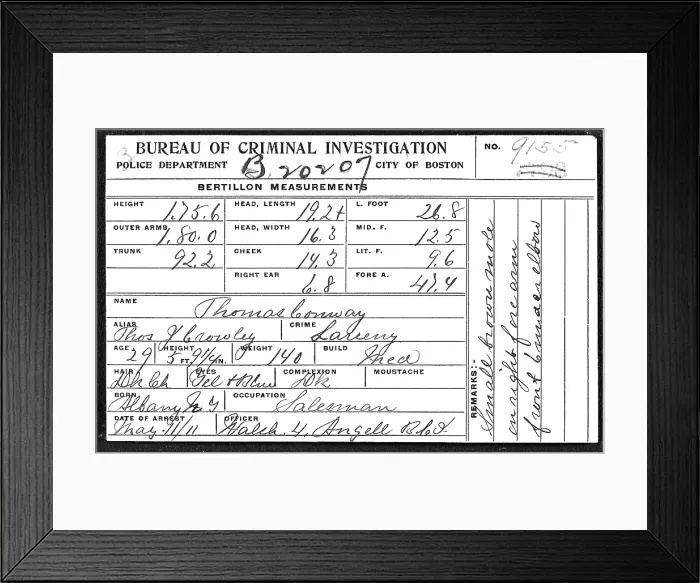 BUREAU OF CRIMINAL INVESTIGATION
POLICE DEPARTMENT B. 20207 CITY OF BOSTON
NO. 9155
BERTILLON MEASUREMENTS
HEIGHT 1,75.6 HEAD, LENGTH 19.2+ L. FOOT 26.8
OUTER ARMS, 1,80.0 HEAD, WIDTH 16.3 MID. F. 12.5
TRUNK 92.2 CHEEK 14.3 LIT. F. 9.6
RIGHT EAR 6.8 FORE A. 47.4
NAME Thomas Conway
ALIAS Thos J Crowley CRIME Larceny
AGE 29 HEIGHT 5 FT. 9 1/4 IN. WEIGHT 140 BUILD Med
HAIR Dk Ch EYES Yel + Blue COMPLEXION Dk MOUSTACHE
BORN Albany N.Y OCCUPATION Salesman
DATE OF ARREST May 11/11 OFFICER Walsh. 4, Angell B.C.I.
REMARKS:- Small brown mole
on right fore arm
front &under elbow